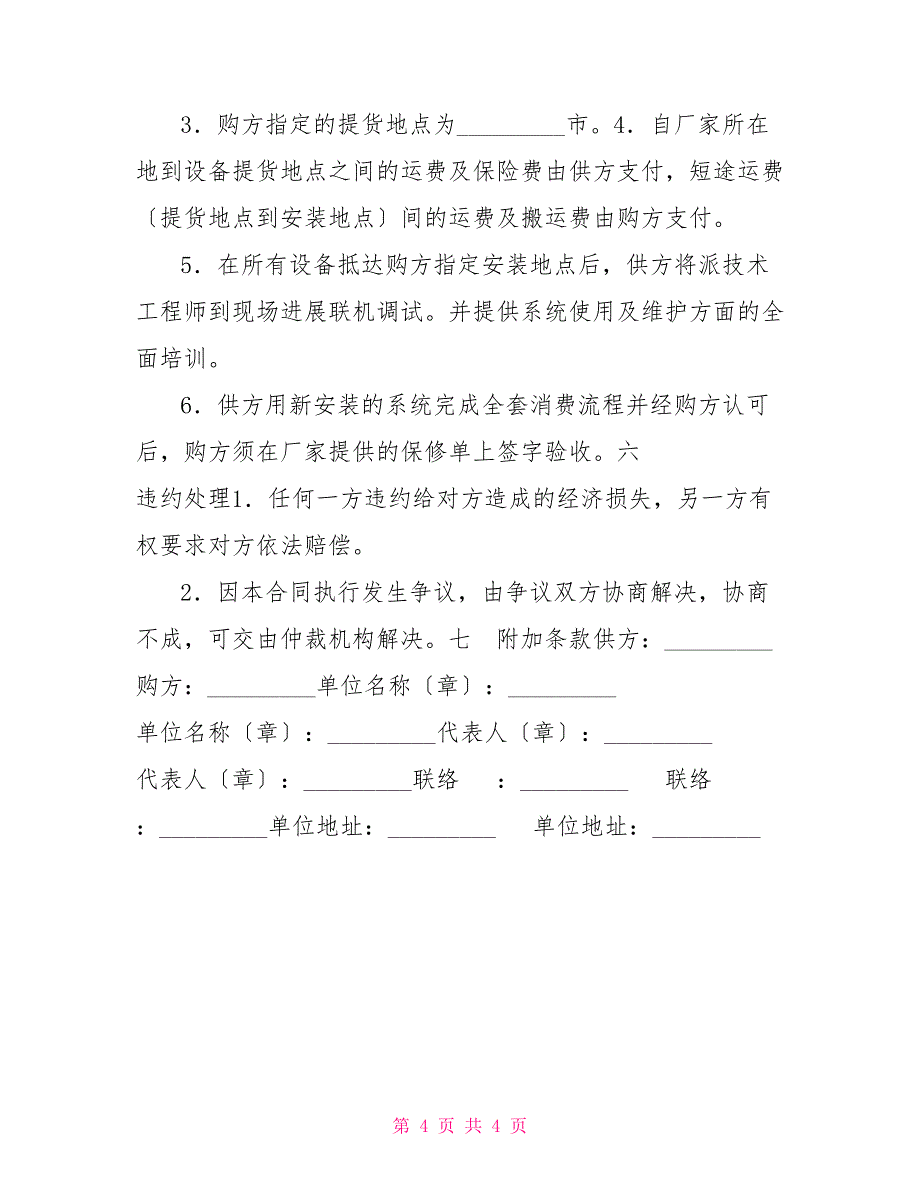 3．购方指定的提货地点为_________市。4．自厂家所在
地到设备提货地点之间的运费及保险费由供方支付，短途运费
〔提货地点到安装地点〕间的运费及搬运费由购方支付。
5．在所有设备抵达购方指定安装地点后，供方将派技术
工程师到现场进展联机调试。并提供系统使用及维护方面的全
面培训。
6．供方用新安装的系统完成全套消费流程并经购方认可
后，购方须在厂家提供的保修单上签字验收。六
违约处理1．任何一方违约给对方造成的经济损失，另一方有
权要求对方依法赔偿。
2．因本合同执行发生争议，由争议双方协商解决，协商
不成，可交由仲裁机构解决。七　附加条款供方：_________
购方：_________单位名称〔章〕：_________
单位名称〔章〕：_________代表人〔章〕：_________
代表人〔章〕：_________联络　：_________　联络
：_________单位地址：_________　单位地址：_________
第 4 页 共 4 页